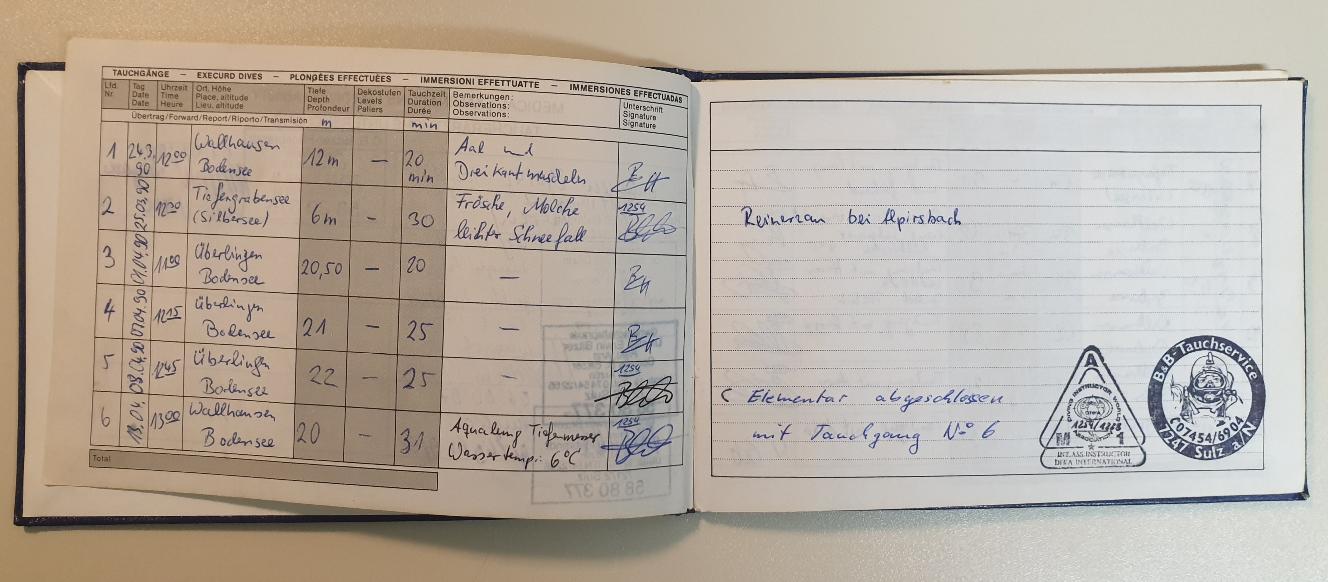 TAUCHGÄNGE – EXECURD DIVES – PLONGÉES EFFECTUÉES – IMMERSIONI EFFETTUATTE – IMMERSIONES EFFECTUADAS
Lfd. Nr.
Tag Date Date
Uhrzeit Time Heure
Ort, Höhe Place, altitude Lieu, altitude
Tiefe Depth Profondeur
Dekostufen Levels Paliers
Tauchzeit Duration Durée
Bemerkungen: Observations: Observations:
Unterschrift Signature Signature
Übertrag/Forward/Report/Riporto/Transmisión m min
1 24.3.90 12⁰⁰ Wallhausen Bodensee 12m – 20 min Aal und Dreikantmuscheln
2 25.03.90 12³⁰ Tiefengrabensee (Silbersee) 6m – 30 Frösche, Molche leichter Schneefall 1254
3 01.04.90 11⁰⁰ Überlingen Bodensee 20,50 – 20 –
4 07.04.90 12¹⁵ Überlingen Bodensee 21 – 25 –
5 08.04.90 12⁴⁵ Überlingen Bodensee 22 – 25 – 1254
6 13⁰⁰ Wallhausen Bodensee 20 – 31 Aqualung Tiefenmesser Wassertemp.: 6°C 1254
Total
58 80 377
Reinerzau bei Alpirsbach
Elementar abgeschlossen
mit Tauchgang N° 6
A
DIVING INSTRUCTOR WORLD
ASSOCIATION
M 1
INT. ASS. INSTRUCTOR
DIWA INTERNATIONAL
B&B-Tauchservice
07454/6904
7247 Sulz a/N